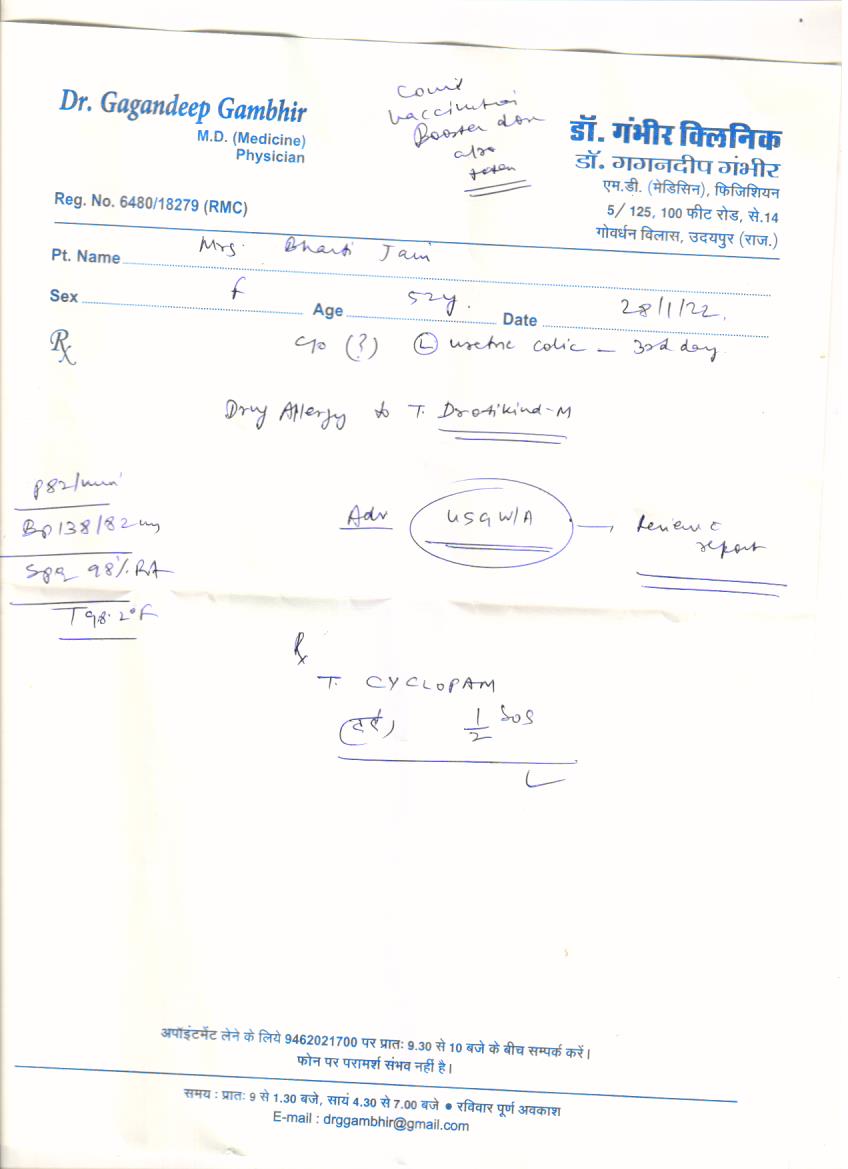 Dr. Gagandeep Gambhir
M.D. (Medicine)
Physician
Reg. No. 6480/18279 (RMC)
Covid
vaccination
Booster dose
also
taken
डॉ. गंभीर क्लिनिक
डॉ. गगनदीप गंभीर
एम.डी. (मेडिसिन), फिजिशियन
5/ 125, 100 फीट रोड, से.14
गोवर्धन विलास, उदयपुर (राज.)
Pt. Name Mrs. Bharti Jain
Sex f Age 52y. Date 28/1/22.
Rx c/o (?) (L) uretric colic – 3rd day
Drug Allergy to T. Drotikind-M
P82/min
Bp 138/82
Spo2 98% RA
T 98.2°F
Adv USG W/A → Review c
report
Rx
T. CYCLOPAM
(दर्द) 1/2 SOS
अपॉइंटमेंट लेने के लिये 9462021700 पर प्रातः 9.30 से 10 बजे के बीच सम्पर्क करें।
फोन पर परामर्श संभव नहीं है।
समय : प्रातः 9 से 1.30 बजे, सायं 4.30 से 7.00 बजे ● रविवार पूर्ण अवकाश
E-mail : drggambhir@gmail.com